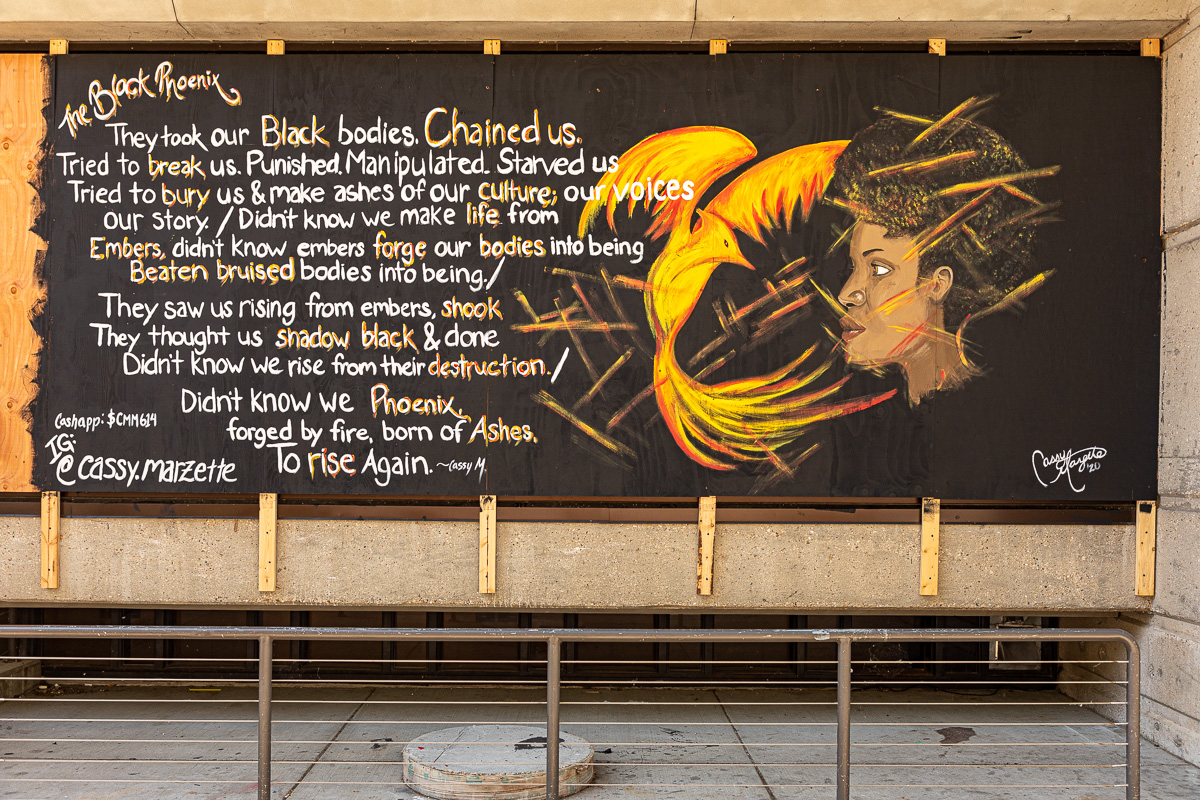 The Black Phoenix
They took our Black bodies. Chained us.
Tried to break us. Punished. Manipulated. Starved us
Tried to bury us & make ashes of our culture; our voices
our story. / Didn't know we make life from
Embers, didn't know embers forge our bodies into being
Beaten bruised bodies into being. /
They saw us rising from embers, shook
They thought us shadow black & done
Didn't know we rise from their destruction. /
Didn't know we Phoenix,
forged by fire, born of Ashes.
To rise Again. ~Cassy M.
Cashapp: $CMM614
IG:
@cassy.marzette
Cassy
Marzette
'20